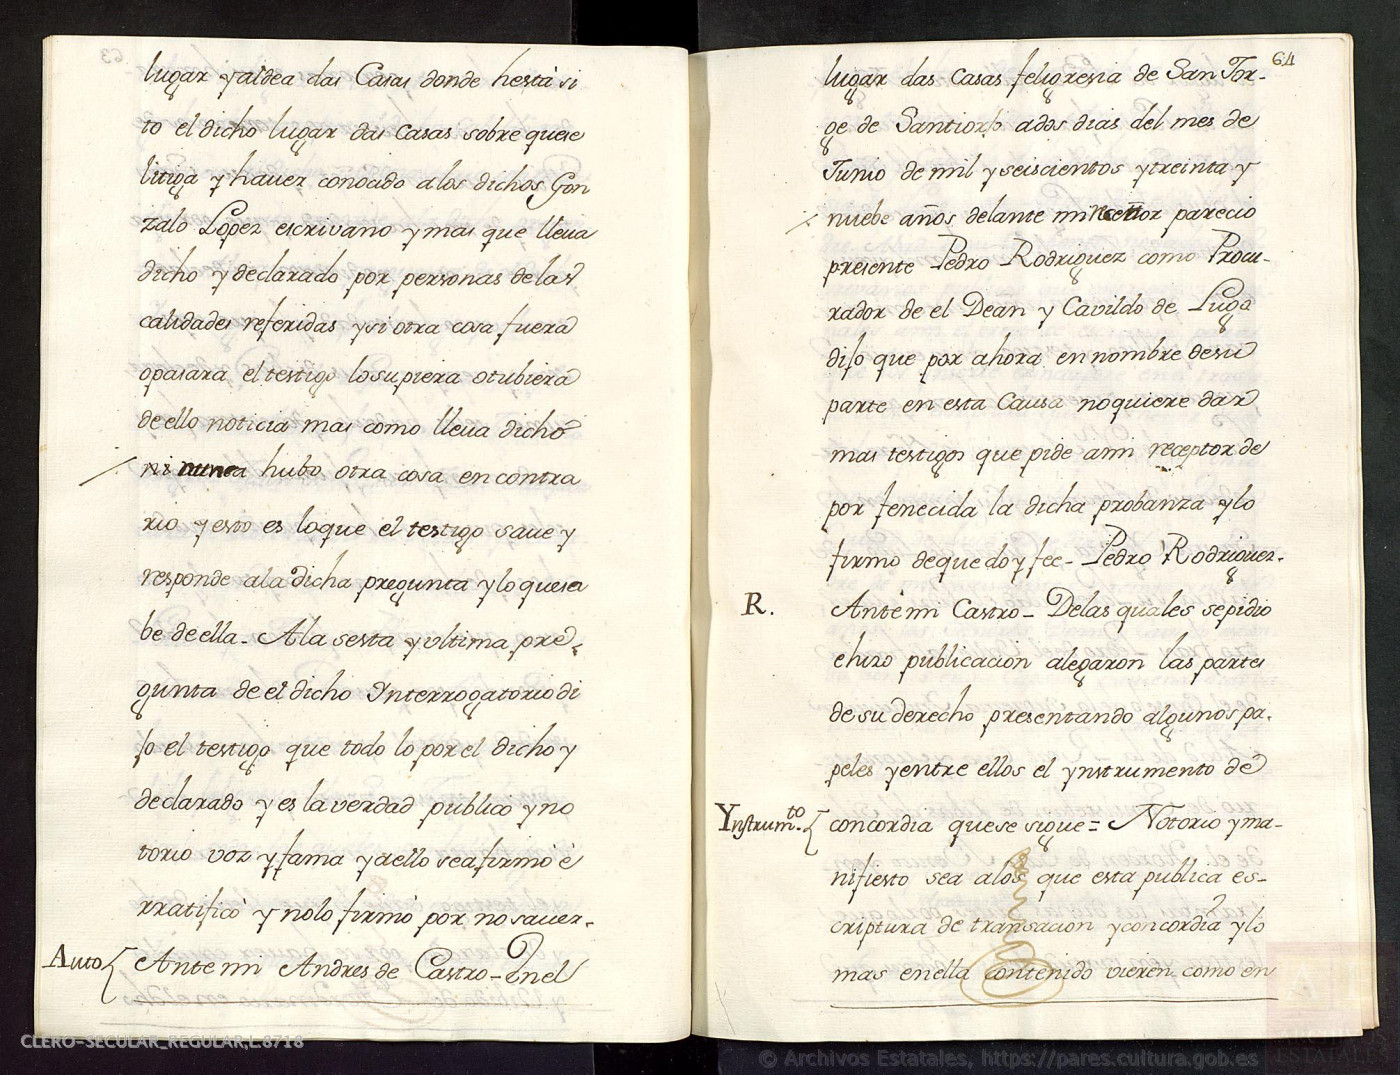 lugar y aldea das Casas donde hestá si
to el dicho lugar das Casas sobre quese
litiga y hauer conocido alos dichos Gon
zalo Lopez escrivano y mas que lleua
dicho y declarado por personas delas
calidades referidas y si otra cosa fuera
opasara el testigo losupiera otubiera
de ello noticia mas como lleua dicho
ni nunca hubo otra cosa en contra
rio y esto es loque el testigo saue y
responde ala dicha pregunta y lo quesa
be de ella - Ala sesta y vltima pre-
gunta de el dicho Ynterrogatorio di
jo el testigo que todo lo por el dicho y
declarado y es la verdad publico y no
torio voz y fama y aello seafirmó é
rratificó y nolo firmó por no sauer-
Auto { Ante mi Andres de Castro - Enel
64
lugar das Casas feligresia de San Jor-
ge de Santiorjo ados dias del mes de
Junio de mil y seiscientos y treinta y
nuebe años delante mi rcettor parecio
presente Pedro Rodriguez como Procu-
rador de el Dean y Cavildo de Lugo
dijo que por ahora en nombre desu
parte en esta Causa noquiere dar
mas testigos que pide ami receptor de
por fenecida la dicha probanza y lo
firmo deque doy fee - Pedro Rodriguez.
R. Ante mi Castro - Delas quales sepidio
ehizo publicacion alegaron las partes
de su derecho presentando algunos pa-
peles y entre ellos el ynstrumento de
Ynstrum.to { concordia quese sigue = Notorio y ma-
nifiesto sea alos que esta publica es-
criptura de transacion y concordia y lo
mas enella contenido vieren como en
CLERO-SECULAR_REGULAR,L.8718
© Archivos Estatales, https://pares.cultura.gob.es